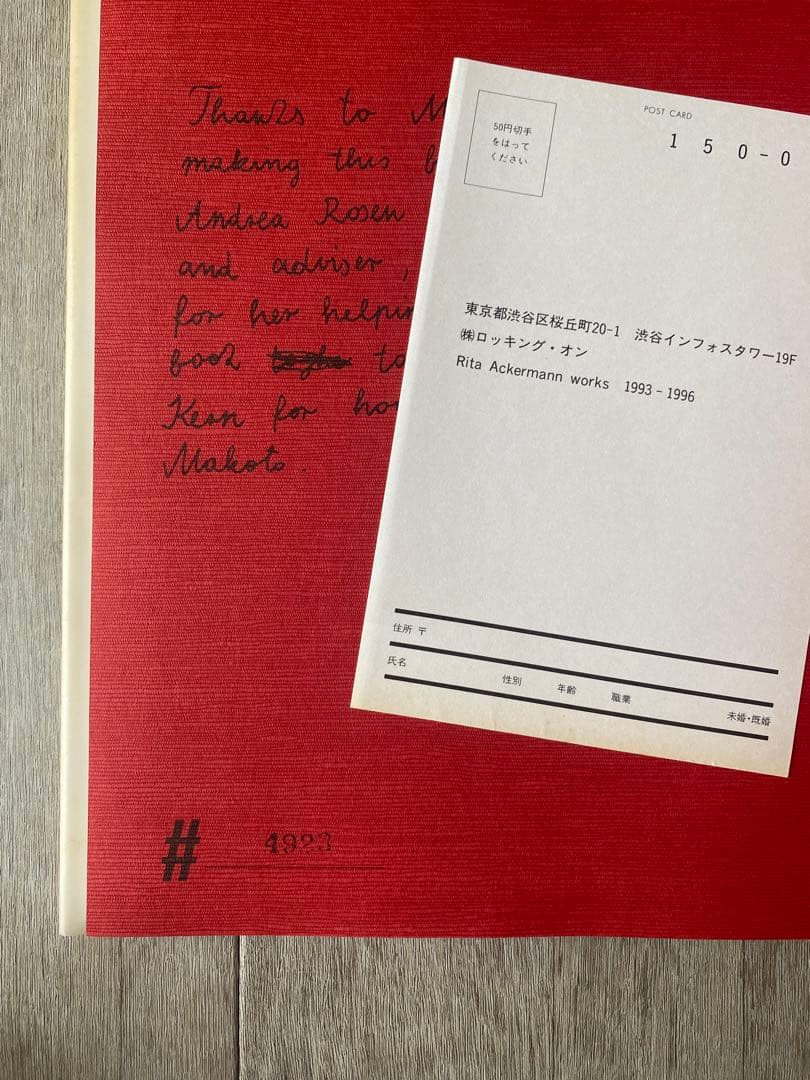 Thanks to M
making this b
Andrea Rosen
and adviser,
for her helpin
book to
Kern for ho
Makoto.
# 4923
POST CARD
50円切手
をはって
ください
150-0
東京都渋谷区桜丘町20-1 渋谷インフォスタワー19F
㈱ロッキング・オン
Rita Ackermann works 1993-1996
住所 〒
氏名
性別 年齢 職業 未婚・既婚